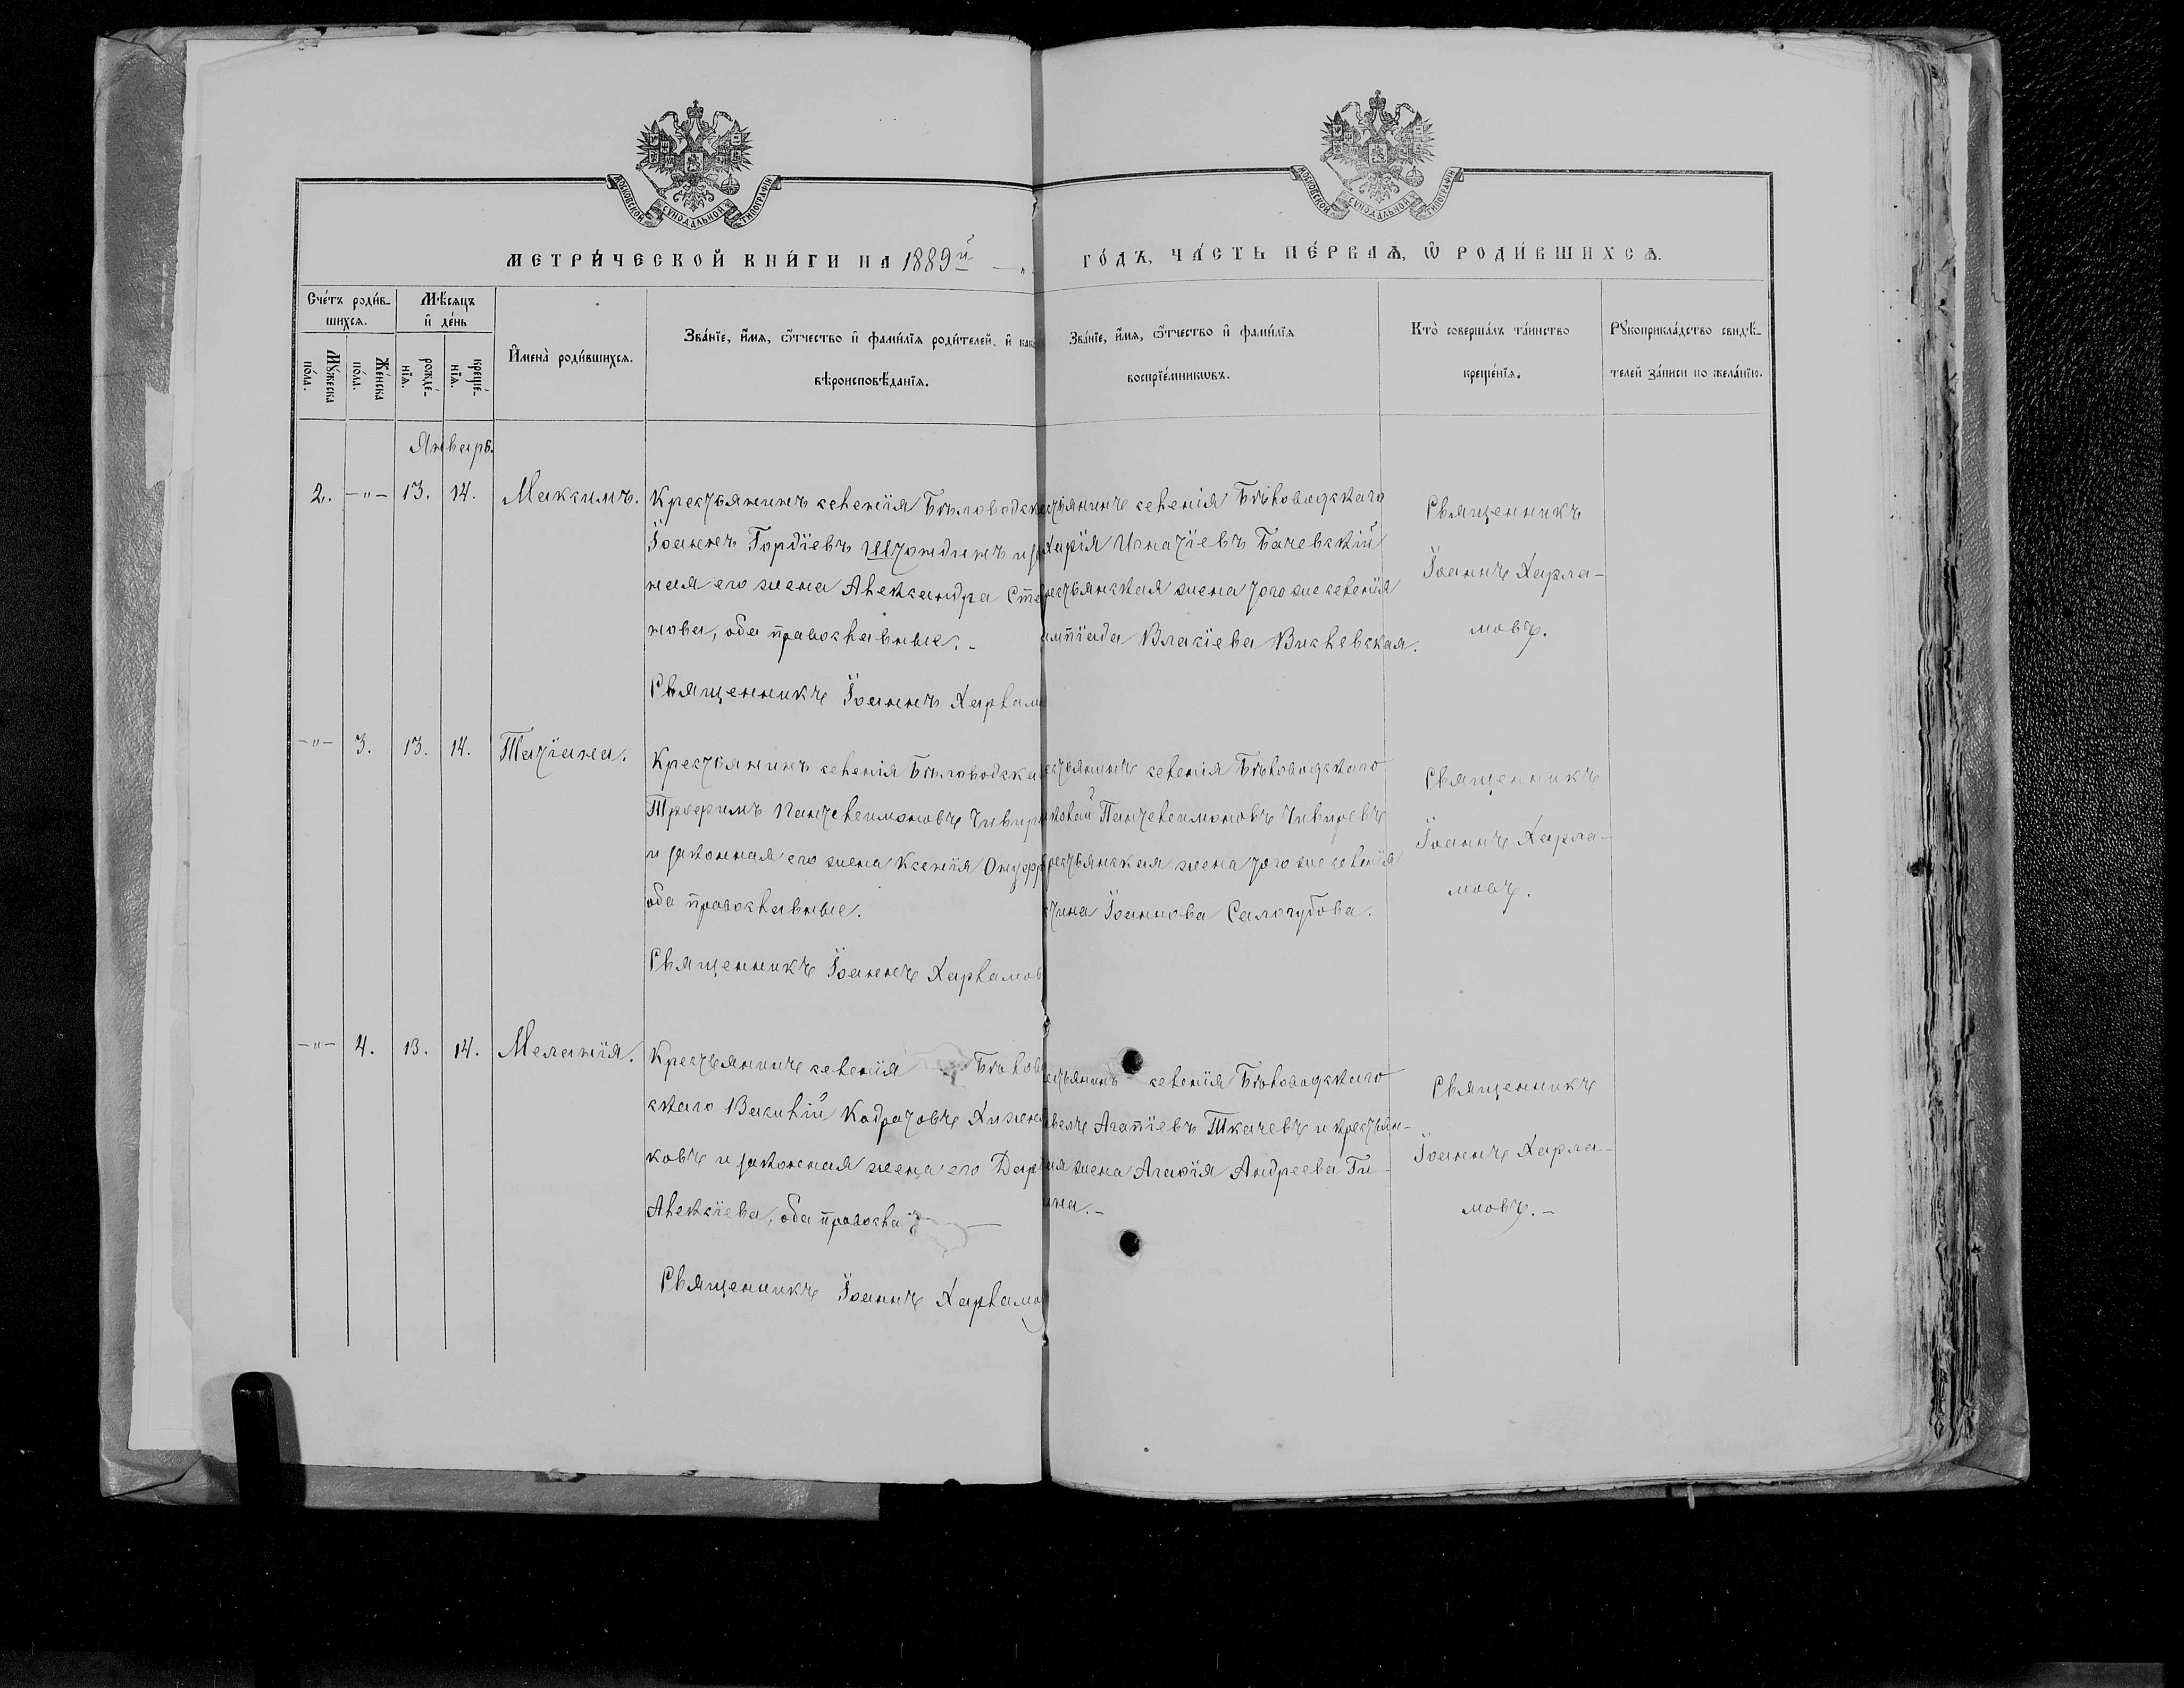 МОСКОВСКОЙ СѴНОДАЛЬНОЙ ТИПОГРАФІИ
МОСКОВСКОЙ СѴНОДАЛЬНОЙ ТИПОГРАФІИ
МЕТРИ́ЧЕСКОЙ КНИ́ГИ НА 1889й
ГО́ДЪ, ЧА́СТЬ ПЕ́РВАѦ, Ѡ РОДИ́ВШИХСѦ.
Сче́тъ роди́в-
шихсѧ.
Мѣ́сяцъ
и҆ де́нь
Мꙋ́жеска
по́ла.
Же́нска
по́ла.
рожде́-
нїѧ.
креще́-
нїѧ.
И҆мена̀ роди́вшихсѧ.
Зва́нїе, и҆́мѧ, ѻ҆́тчество и҆ фами́лїѧ роди́телей, и҆
вѣроисповѣ́данїѧ.
Зва́нїе, и҆́мѧ, ѻ҆́тчество и҆ фами́лїѧ
воспрїе́мникѡвъ.
Кто̀ соверша́лъ та́инство
креще́нїѧ.
Рꙋкоприкла́дство свидѣ́-
телей за́писи по жела́нїю.
Январь.
2. -"- 13. 14. Максимъ.
Крестьянинъ селенія Бѣловодск
Іоаннъ Гордіевъ и
ная его жена Александра Сте
нова, оба православные. -
Священникъ Іоаннъ Харламо
стьянинъ селенія Бѣловодскаго
харія Игнатіевъ Бачевскій
рестьянская жена того же селенія
импіада Власіева Вислевская.
Священникъ
Іоаннъ Харла-
мовъ.
-"- 3. 13. 14. Татіана.
Крестьянинъ селенія Бѣловодска
Трофимъ Пантелеимоновъ Чивир
и законная его жена Ксенія Онуфр
оба православные.
Священникъ Іоаннъ Харламов
естьянинъ селенія Бѣловодскаго
иколай Пантелеимоновъ Чивиревъ
рестьянская жена того же селенія
стина Іоаннова Салогубова.
Священникъ
Іоаннъ Харла-
мовъ.
-"- 4. 13. 14. Меланія.
Крестьянинъ селенія Бѣлово
скаго Василій Кодратовъ Хижня
ковъ и законная жена его Дар
Алексіева, оба правосла
Священникъ Іоаннъ Харламо
естьянинъ селенія Бѣловодскаго
авелъ Агапіевъ Ткачевъ и крестьян-
ая жена Агафія Андреева Ти-
ина. -
Священникъ
Іоаннъ Харла-
мовъ. -